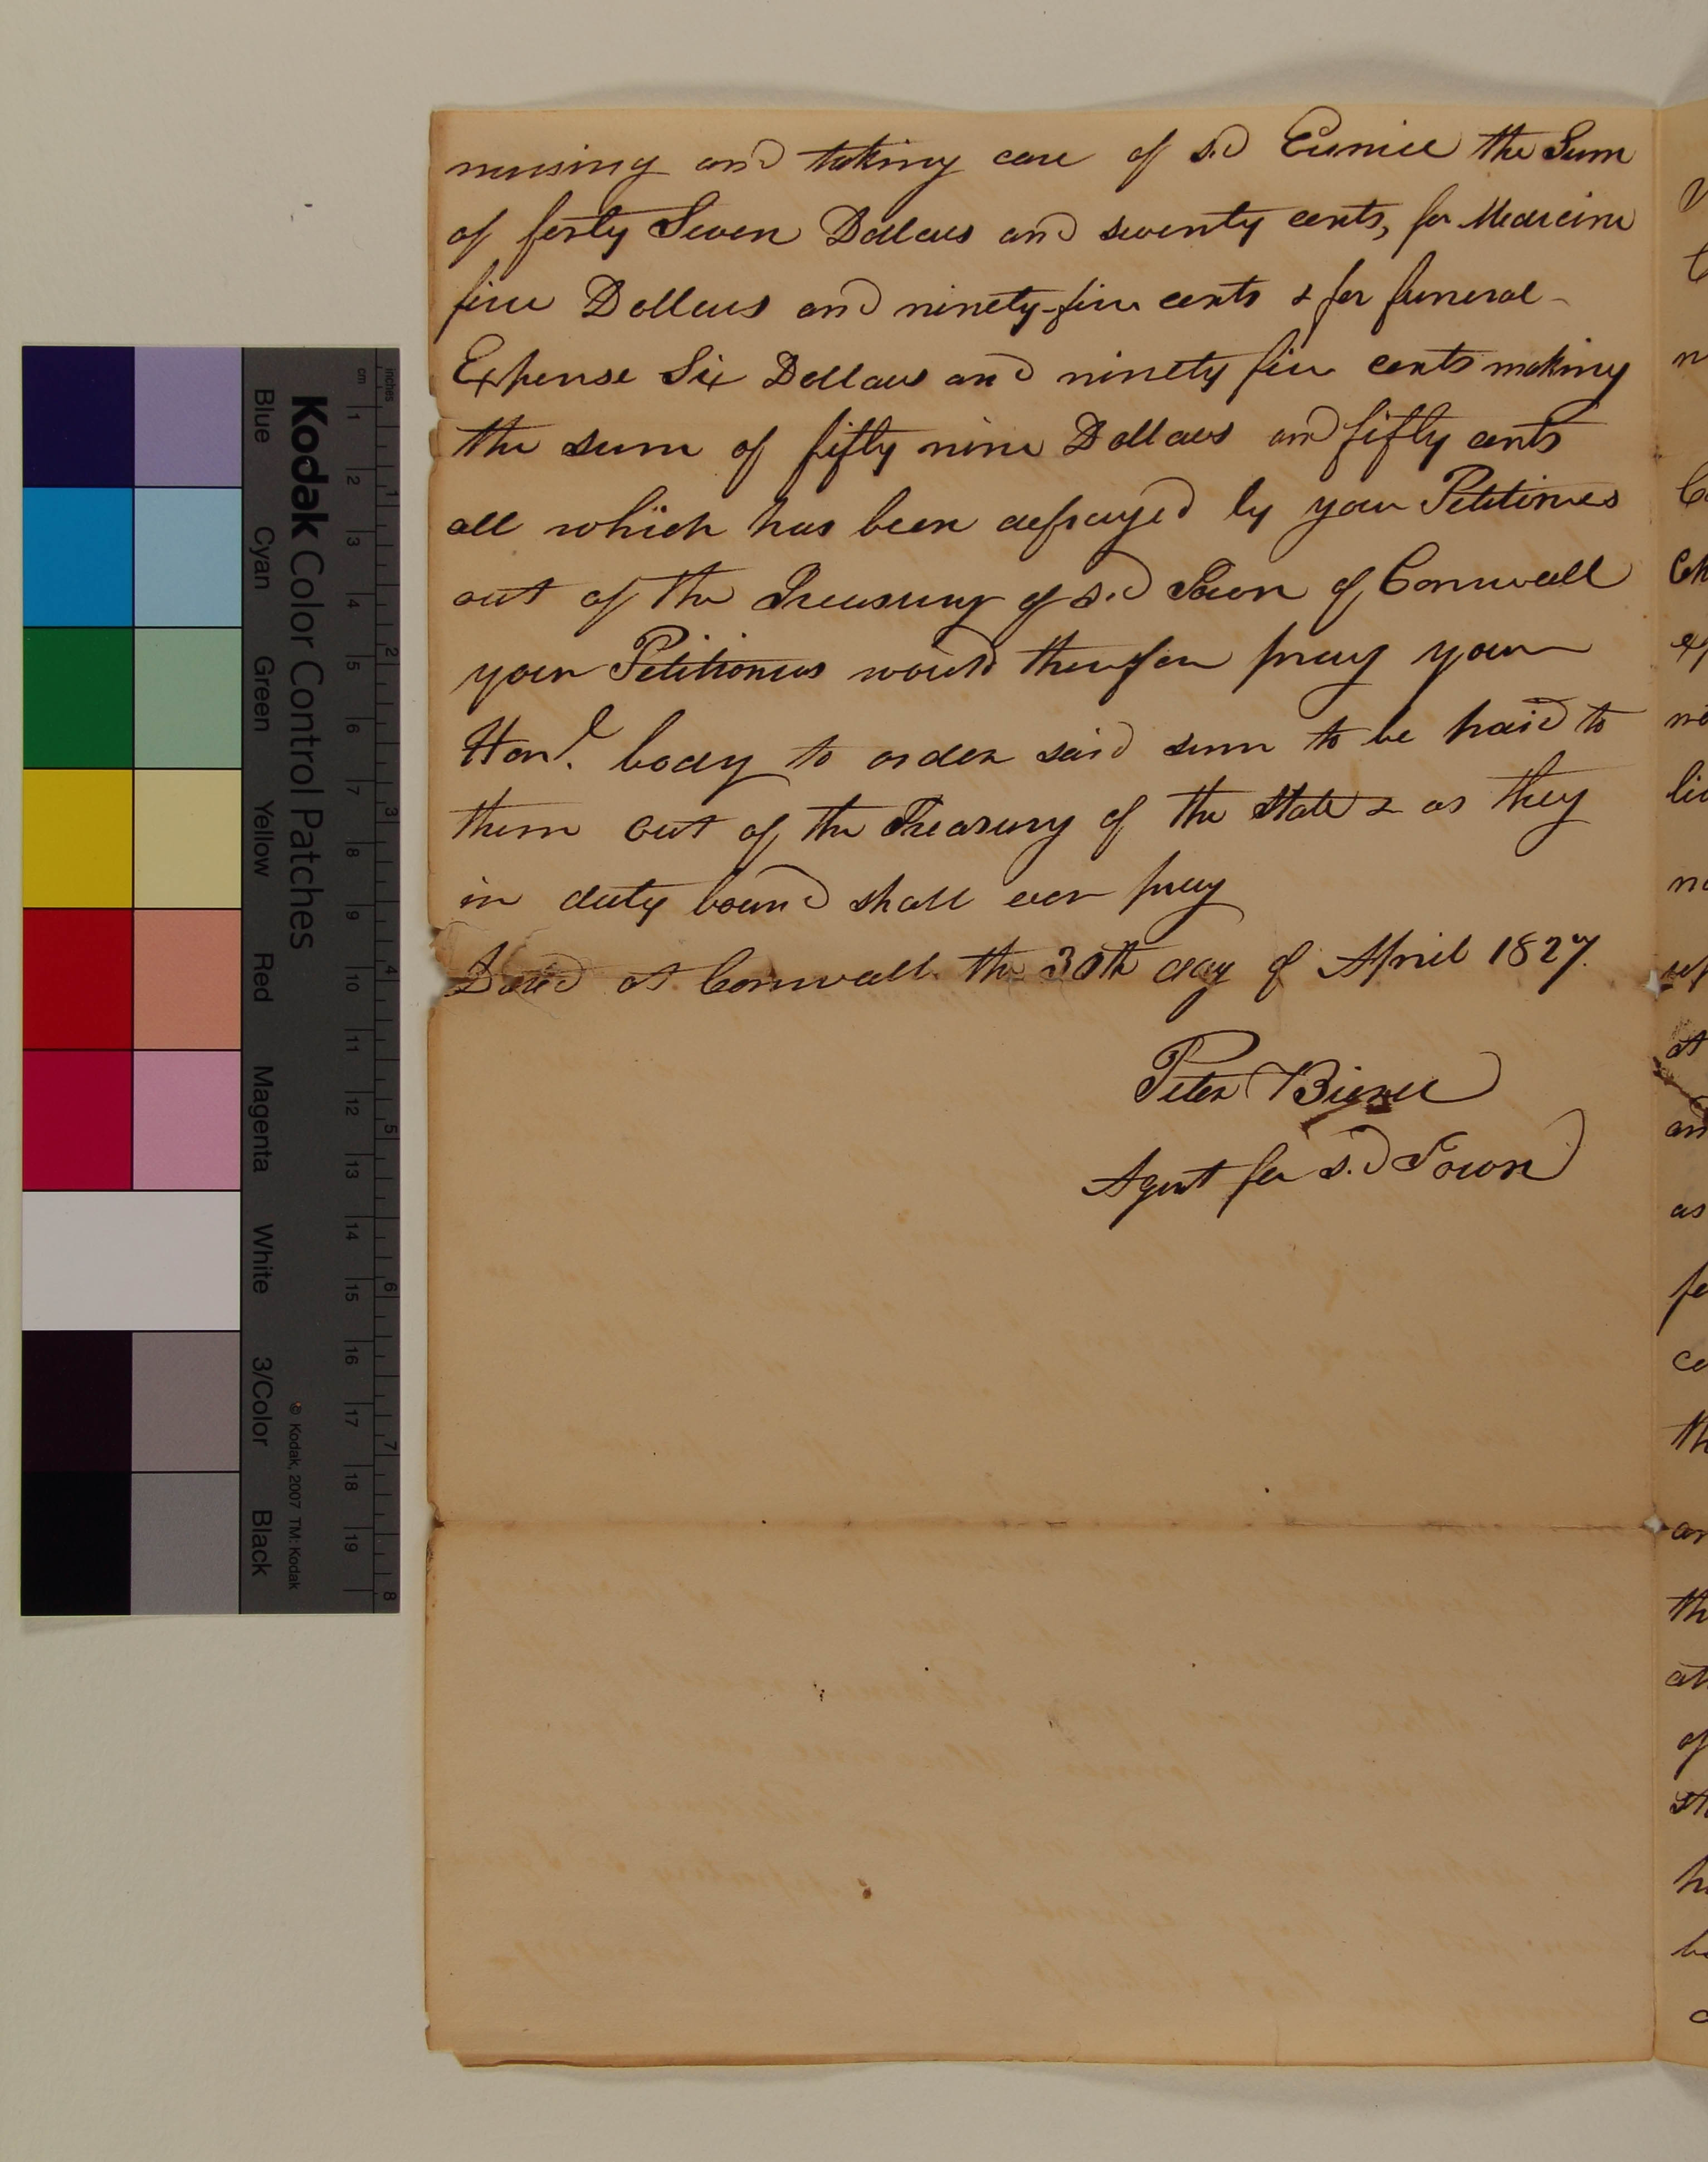 nursing and taking care of s.d Eunice the Sum
of forty Seven Dollars and twenty cents, for Medicine
five Dollars and ninety-five cents & for funeral
Expense Six Dollars and ninety five cents making
the sum of fifty nine Dollars and fifty cents
all which has been defrayed by your Petitioners
out of the Treasury of s.d Town of Cornwall
your Petitioners would therefore pray your
Honl. body to order said sum to be paid to
them out of the Treasury of the State & as they
in duty bound shall ever pray
Dated at Cornwall the 30th day of April 1827.
Peter Bierce
Agent for s.d Town
Kodak Color Control Patches
© Kodak, 2007 TM: Kodak
Blue Cyan Green Yellow Red Magenta White 3/Color Black
cm 1 2 3 4 5 6 7 8 9 10 11 12 13 14 15 16 17 18 19
inches 1 2 3 4 5 6 7 8